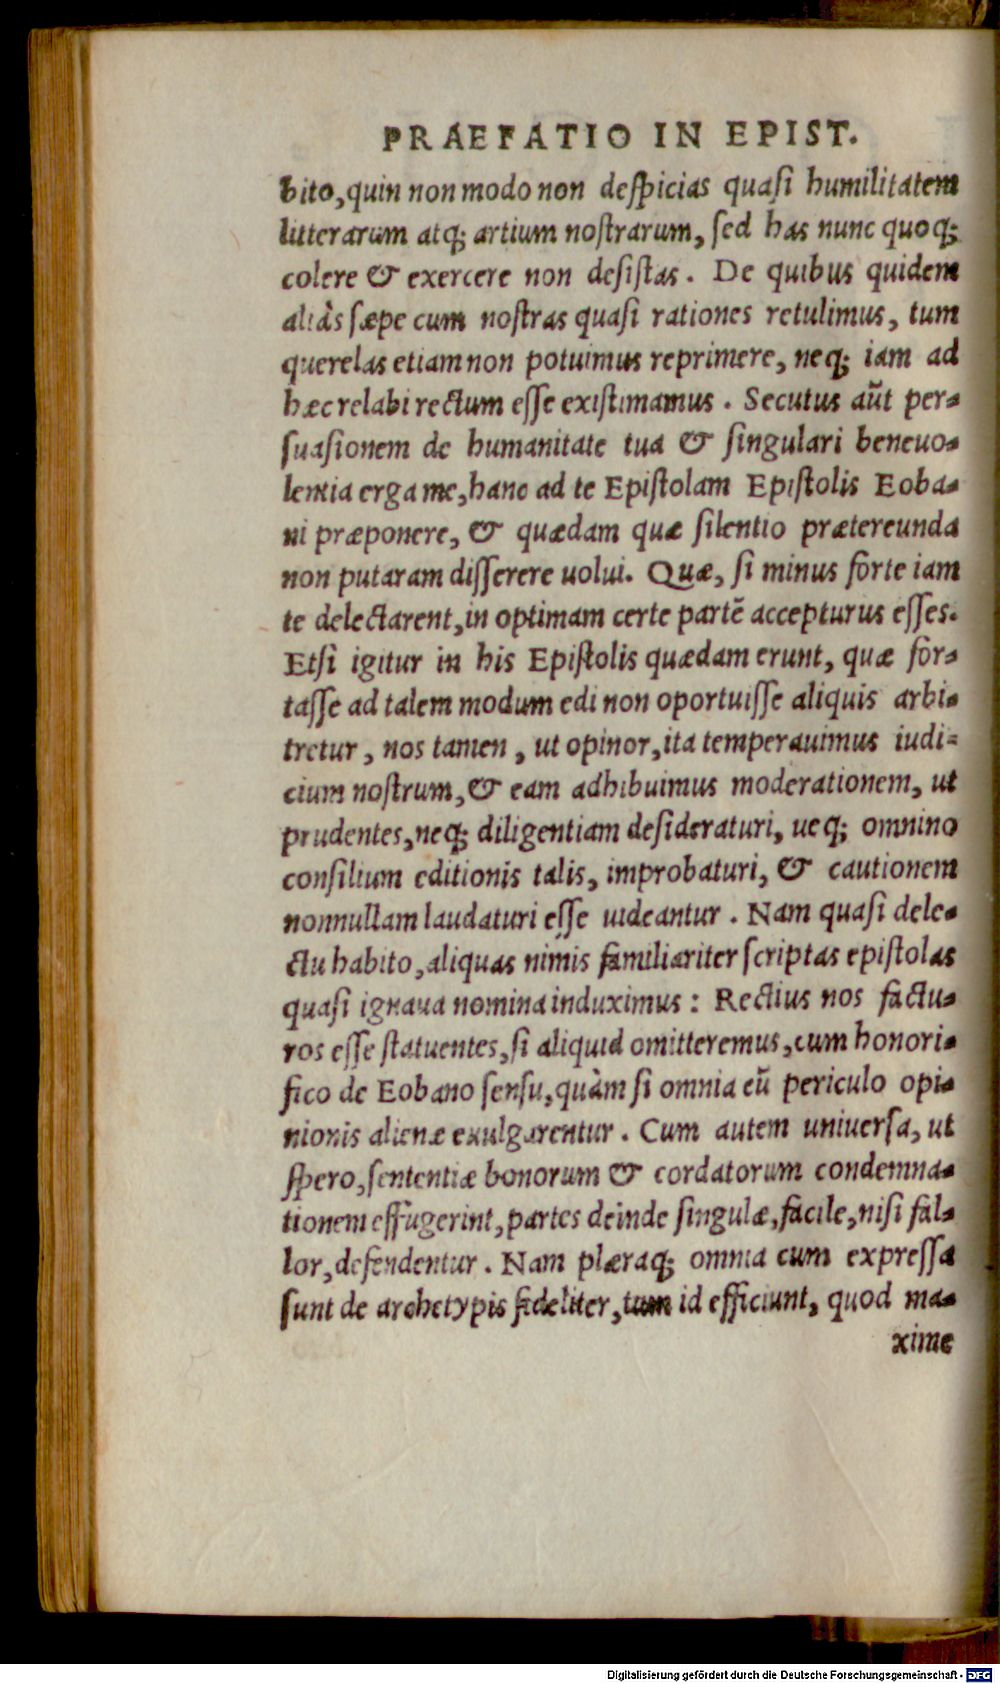 PRAEFATIO IN EPIST.
bito, quin non modo non despicias quasi humilitatem
litterarum atq; artium nostrarum, sed has nunc quoq;
colere & exercere non desistas. De quibus quidem
aliàs sæpe cum nostras quasi rationes retulimus, tum
querelas etiam non potuimus reprimere, neq; iam ad
hæc relabi rectum esse existimamus. Secutus aũt per-
suasionem de humanitate tua & singulari beneuo-
lentia erga me, hanc ad te Epistolam Epistolis Eoba-
ni præponere, & quædam quæ silentio prætereunda
non putaram disserere uolui. Quæ, si minus forte iam
te delectarent, in optimam certe partẽ accepturus esses.
Etsi igitur in his Epistolis quædam erunt, quæ for-
tasse ad talem modum edi non oportuisse aliquis arbi-
tretur, nos tamen, ut opinor, ita temperauimus iudi-
cium nostrum, & eam adhibuimus moderationem, ut
prudentes, neq; diligentiam desideraturi, ueq; omnino
consilium editionis talis, improbaturi, & cautionem
nonnullam laudaturi esse uideantur. Nam quasi dele-
ctu habito, aliquas nimis familiariter scriptas epistolas
quasi ignaua nomina induximus: Rectius nos factu-
ros esse statuentes, si aliquid omitteremus, cum honori-
fico de Eobano sensu, quàm si omnia cũ periculo opi-
nionis alienæ exulgarentur. Cum autem uniuersa, ut
spero, sententiæ bonorum & cordatorum condemna-
tionem effugerint, partes deinde singulæ, facile, nisi fal-
lor, defendentur. Nam plæraq; omnia cum expressa
sunt de archetypis fideliter, tum id efficiunt, quod ma-
xime
Digitalisierung gefördert durch die Deutsche Forschungsgemeinschaft - DFG